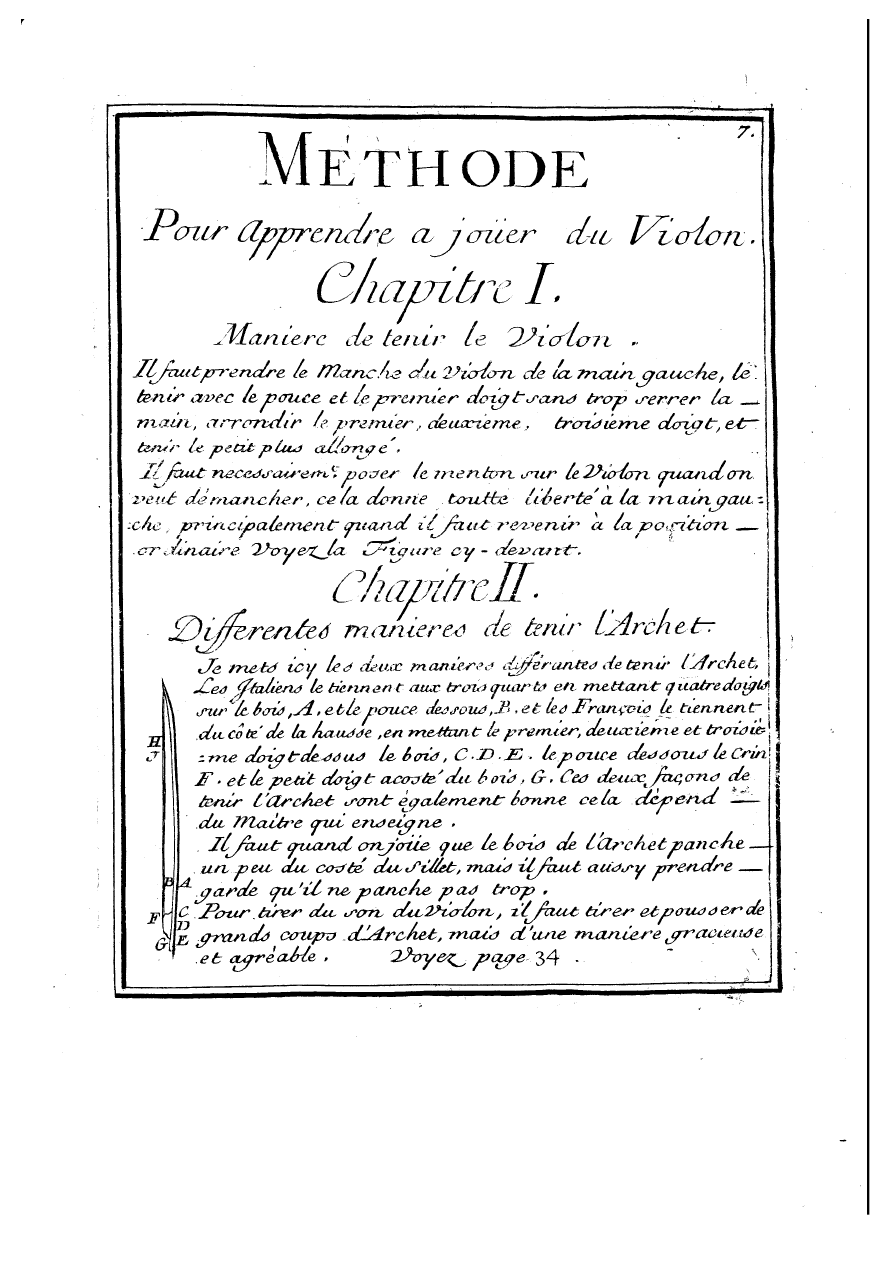 7.
MÉTHODE
Pour apprendre a joüer du Violon.
Chapitre I.
Maniere de tenir le Violon.
Il faut prendre le Manche du Violon de la main gauche, le
tenir avec le pouce et le premier doigt sans trop serrer la
main, arrondir le premier, deuxieme, troisieme doigt, et
tenir le petit plus allongé.
Il faut necessairem.t poser le menton sur le Violon quand on
veut démancher, cela donne toutte liberté à la main gau=
=che, principalement quand il faut revenir à la position
ordinaire Voyez la Figure cy-devant.
Chapitre II.
Differentes manieres de tenir l'Archet.
Je mets icy les deux manieres différantes de tenir l'Archet,
Les Italiens le tiennent aux trois quarts en mettant quatre doigts
sur le bois, A, et le pouce dessous, B. et les François le tiennent
du côté de la hausse, en mettant le premier, deuxiéme et troisié=
=me doigt dessus le bois, C. D. E. le pouce dessous le Crin
F. et le petit doigt acosté du bois, G. Ces deux façons de
tenir l'Archet sont également bonne cela dépend
du Maitre qui enseigne.
Il faut quand on joüe que le bois de l'Archet panche
un peu du costé du Sillet, mais il faut aussy prendre
garde qu'il ne panche pas trop.
Pour tirer du son du Violon, il faut tirer et pousser de
grands coups d'Archet, mais d'une maniere gracieuse
et agréable. Voyez page 34.
H
J
B A
F C
D
G E